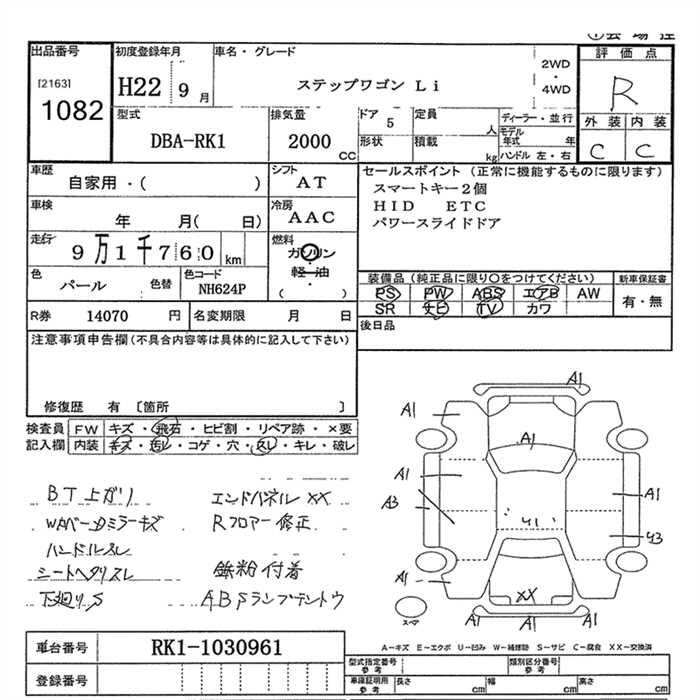 出品番号
[2163]
1082
初度登録年月
H22 9 月
車名・グレード
ステップワゴン Li
2WD
・
4WD
評価点
R
外装 内装
C C
型式
DBA-RK1
排気量
2000 CC
ドア 5
定員 人
形状
積載 kg
ディーラー・並行
モデル年式 年
ハンドル 左・右
車歴
自家用・( )
シフト
AT
車検
年 月( 日)
冷房
AAC
走行
9万1千760 km
燃料
ガソリン
・
軽油
・
( )
色
パール 色替
色コード
NH624P
R券 14070 円
名変期限 月 日
セールスポイント (正常に機能するものに限ります)
スマートキー2個
HID ETC
パワースライドドア
装備品(純正品に限り○をつけてください)
PS PW ABS エアB AW
SR ナビ TV カワ
新車保証書
有・無
後日品
注意事項申告欄(不具合内容等は具体的に記入して下さい)
修復歴 有 〔箇所 〕
検査員記入欄
FW キズ・飛石・ヒビ割・リペア跡・×要
内装 キズ・汚レ・コゲ・穴・スレ・キレ・破レ
BT上ガリ エンドパネル XX
WAペータミラーキズ Rフロアー修正
ハンドルスレ
シートヘタリスレ 鉄粉付着
下廻りS ABSランプテントウ
A1
A1
A1
A1
A3
A1
U1
U3
A1
XX
A1
A1
スペア
A-キズ E-エクボ U-凹み W-補修跡 S-サビ C-腐食 XX-交換済
車台番号 RK1-1030961
登録番号
型式指定番号 参考
類別区分番号 参考
車庫証明用 参考
長さ cm 幅 cm 高さ cm